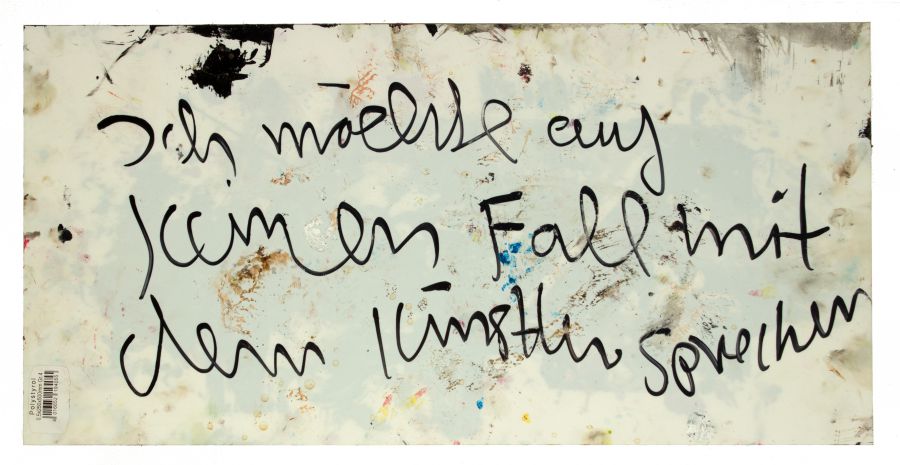 Ich möchte auf
keinen Fall mit
dem Künstler sprechen
Polystyrol